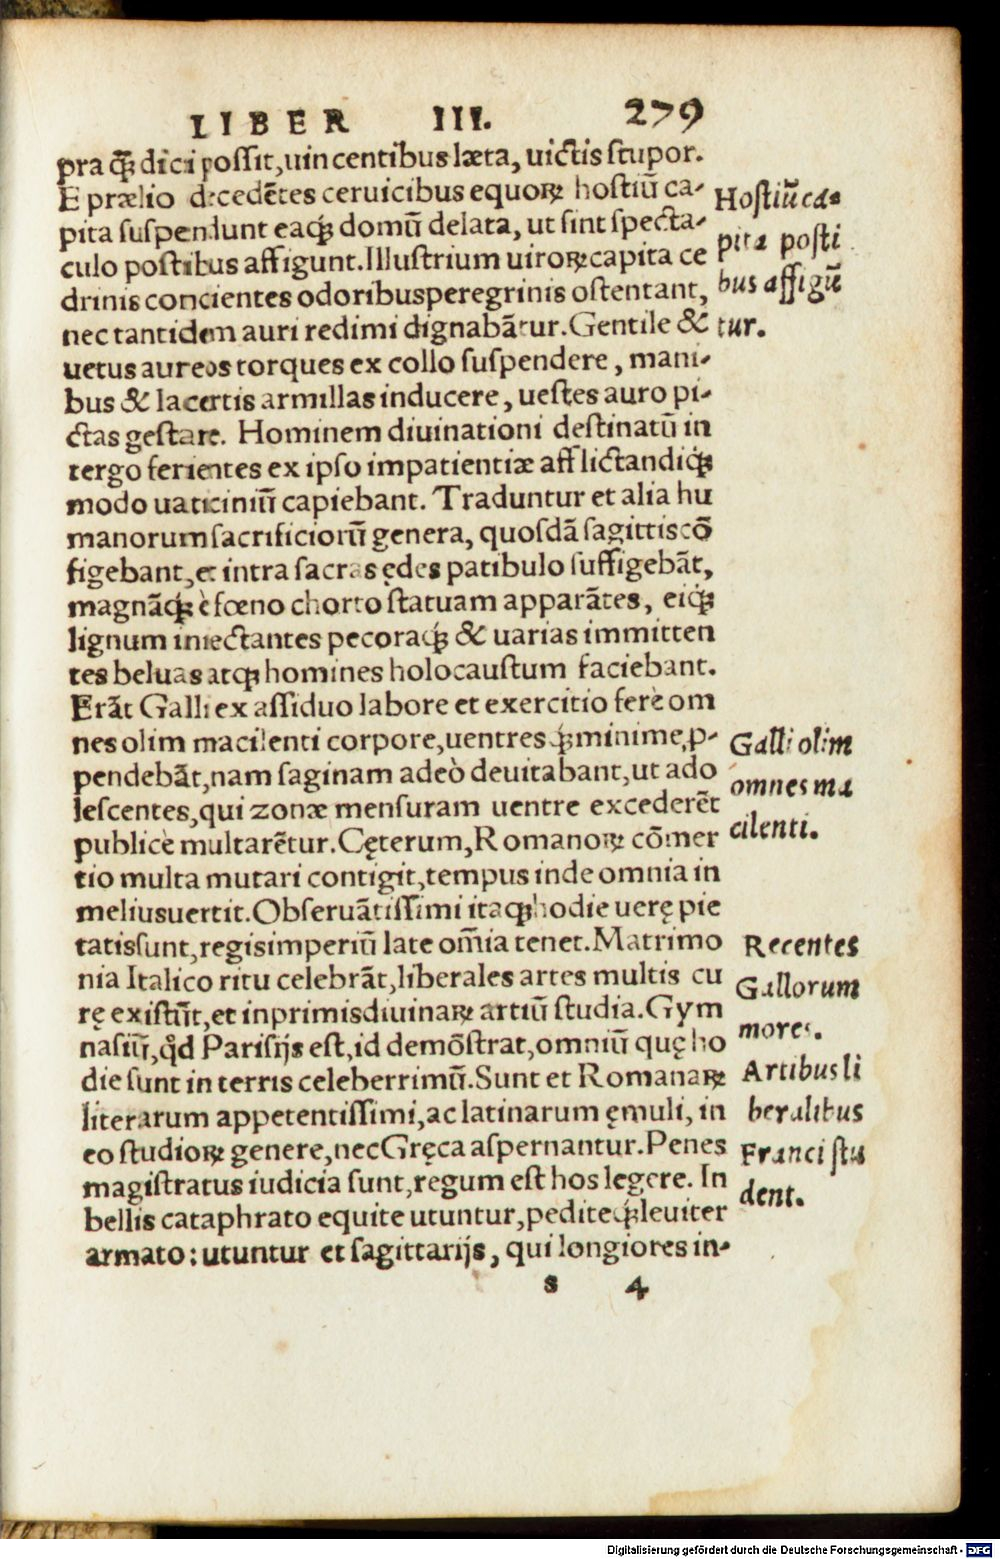 LIBER III. 279
pra ꝗ̃ dici possit, uincentibus læta, uictis stupor.
E prælio decedẽtes ceruicibus equoꝝ hostiũ ca-
pita suspendunt eaq́ꝫ domũ delata, ut sint specta-
culo postibus affigunt. Illustrium uiroꝝ capita ce
drinis concientes odoribus peregrinis ostentant,
nec tantidem auri redimi dignabãtur. Gentile &
uetus aureos torques ex collo suspendere, mani-
bus & lacertis armillas inducere, uestes auro pi-
ctas gestare. Hominem diuinationi destinatũ in
tergo ferientes ex ipso impatientiæ afflictandiq́ꝫ
modo uaticiniũ capiebant. Traduntur et alia hu
manorum sacrificiorũ genera, quosdã sagittis cõ
figebant, et intra sacras ędes patibulo suffigebãt,
magnãq́ꝫ è fœno chorto statuam apparãtes, eiq́ꝫ
lignum iniectantes pecoraq́ꝫ & uarias immitten
tes beluas atqꝫ homines holocaustum faciebant.
Erãt Galli ex assiduo labore et exercitio ferè om
nes olim macilenti corpore, uentresq́ꝫ minime ꝓ-
pendebãt, nam saginam adeò deuitabant, ut ado
lescentes, qui zonæ mensuram uentre excederẽt
publicè multarẽtur. Cęterum, Romanoꝝ cõmer
tio multa mutari contigit, tempus inde omnia in
melius uertit. Obseruãtissimi itaqꝫ hodie uerę pie
tatis sunt, regis imperiũ late om̃ia tenet. Matrimo
nia Italico ritu celebrãt, liberales artes multis cu
rę existũt, et inprimis diuinaꝝ artiũ studia. Gym
nasiũ, qd̓ Parisijs est, id demõstrat, omniũ quę ho
die sunt in terris celeberrimũ. Sunt et Romanaꝝ
literarum appetentissimi, ac latinarum ęmuli, in
eo studioꝝ genere, nec Gręca aspernantur. Penes
magistratus iudicia sunt, regum est hos legere. In
bellis cataphrato equite utuntur, pediteq́ꝫ leuiter
armato: utuntur et sagittarijs, qui longiores in-
s 4
Hostiũ ca-
pita posti
bus affigũ
tur.
Galli olim
omnes ma
cilenti.
Recentes
Gallorum
mores.
Artibus li
beralibus
Franci stu
dent.
Digitalisierung gefördert durch die Deutsche Forschungsgemeinschaft - DFG